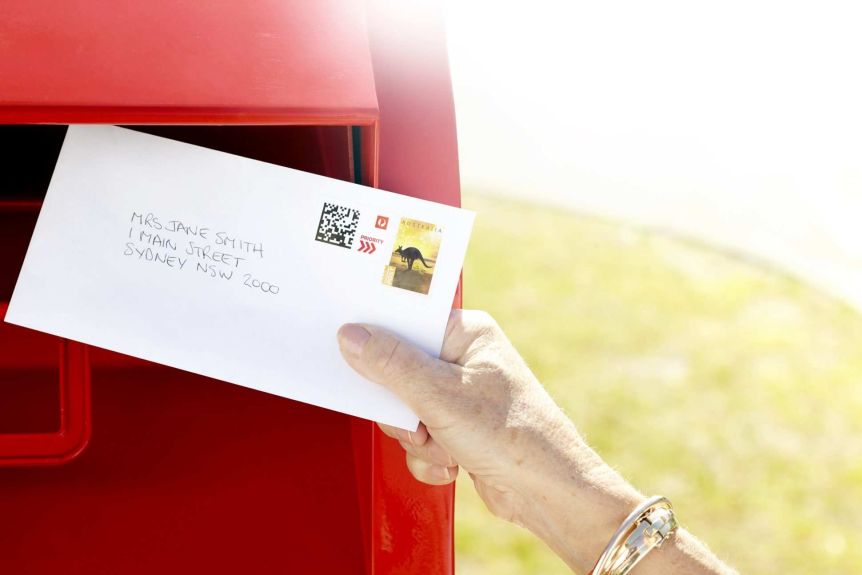 MRS JANE SMITH
1 MAIN STREET
SYDNEY NSW 2000
PRIORITY
AUSTRALIA